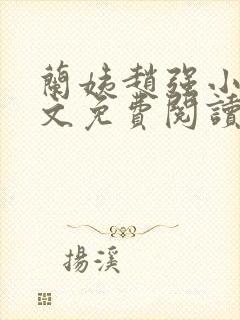 蘭姨趙强小
文免費閱讀
揚溪